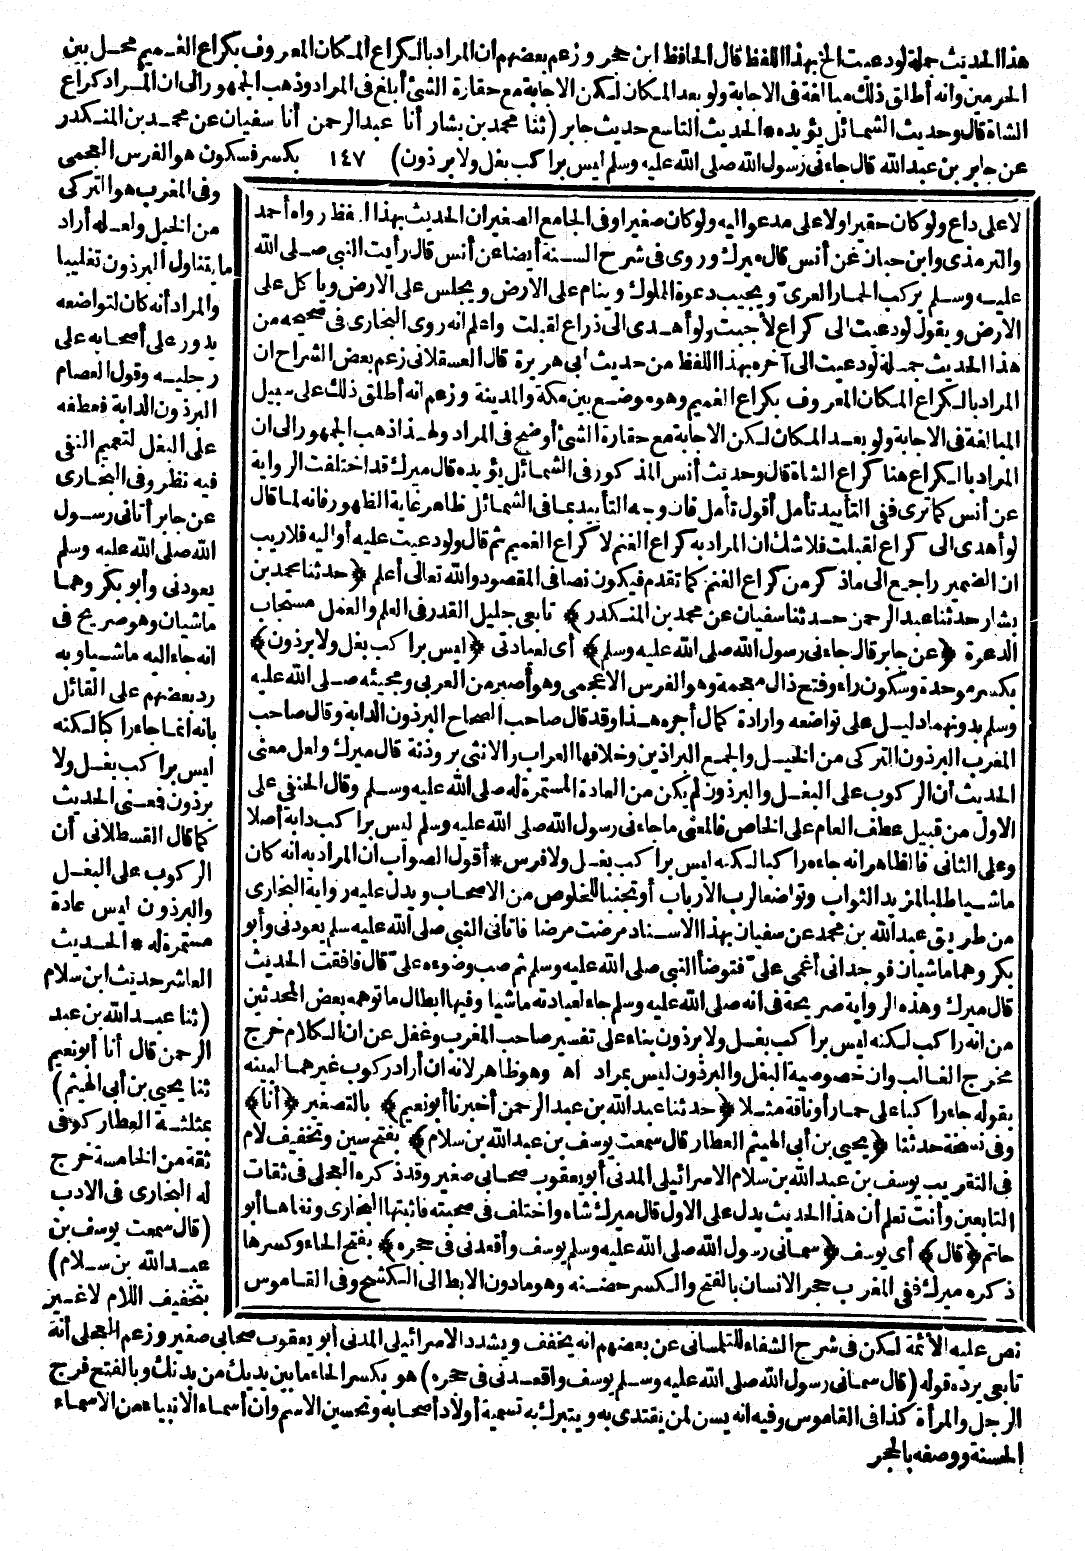 هذا الحديث جملة لو دعيت الخ بهذا اللفظ قال الحافظ ابن حجر وزعم بعضهم ان المراد بالكراع المكان المعروف بكراع الغميم محل بين
الحرمين وانه أطلق ذلك مبالغة في الاجابة ولو بعد المكان لكن الاجابة مع حقارة الشئ أبلغ في المراد وذهب الجمهور الى ان المراد كراع
الشاة قال وحديث الشمائل يؤيده * الحديث التاسع حديث جابر (ثنا محمد بن بشار أنا عبد الرحمن أنا سفيان عن محمد بن المنكدر
عن جابر بن عبد الله قال جاءني رسول الله صلى الله عليه وسلم ليس براكب بغل ولا برذون) ١٤٧ بكسر فسكون هو الفرس العجمى
وفى المغرب هو التركى
من الخيل ولعله أراد
ما يتناول البرذون تغليبا
والمراد أنه كان لتواضعه
يدور على أصحابه على
رجليه وقول العصام
البرذون الدابة فعطفه
على البغل لتعميم النفى
فيه نظر وفى البخارى
عن جابر أتانى رسول
الله صلى الله عليه وسلم
يعودنى وأبو بكر وهما
ماشيان وهو صريح فى
انه جاء اليه ماشيا وبه
رد بعضهم على القائل
بانه انما جاء راكبا لكنه
ليس براكب بغل ولا
برذون فمعنى الحديث
كما قال القسطلانى أن
الركوب على البغل
والبرذون ليس عادة
مستمرة له * الحديث
العاشر حديث ابن سلام
(ثنا عبد الله بن عبد
الرحمن قال أنا أبو نعيم
ثنا يحيى بن أبى الهيثم)
بمثلثة العطار كوفى
ثقة من الخامسة خرج
له البخارى فى الادب
(قال سمعت يوسف بن
عبد الله بن سلام)
بتخفيف اللام لا غير
لا على داع ولو كان حقيرا ولا على مدعو اليه ولو كان صغيرا وفى الجامع الصغير ان الحديث بهذا اللفظ رواه أحمد
والترمذى وابن حبان عن أنس قال ميرك وروى فى شرح السنة أيضا عن أنس قال رأيت النبى صلى الله
عليه وسلم يركب الحمار العرى ويجيب دعوة المملوك وينام على الارض ويجلس على الارض ويأكل على
الارض ويقول لو دعيت الى كراع لأجبت ولو أهدى الى ذراع لقبلت واعلم انه روى البخارى فى صحيحه من
هذا الحديث جملة لو دعيت الى آخره بهذا اللفظ من حديث أبى هريرة قال العسقلانى زعم بعض الشراح ان
المراد بالكراع المكان المعروف بكراع الغميم وهو موضع بين مكة والمدينة وزعم انه أطلق ذلك على سبيل
المبالغة فى الاجابة ولو بعد المكان لكن الاجابة مع حقارة الشئ أوضح فى المراد ولهذا ذهب الجمهور الى ان
المراد بالكراع هنا كراع الشاة قال وحديث أنس المذكور فى الشمائل يؤيده قال ميرك قد اختلفت الرواية
عن أنس كما ترى ففى التأييد تأمل أقول تأمل فان وجه التأييد بما فى الشمائل ظاهر غاية الظهور فانه لما قال
لو أهدى الى كراع لقبلت فلا شك ان المراد به كراع الغنم لا كراع الغميم ثم قال ولو دعيت عليه أو اليه فلا ريب
ان الضمير راجع الى ما ذكر من كراع الغنم كما تقدم فيكون نصا فى المقصود والله تعالى أعلم ﴿حدثنا محمد بن
بشار حدثنا عبد الرحمن حدثنا سفيان عن محمد بن المنكدر﴾ تابعى جليل القدر فى العلم والعمل مستجاب
الدعوة ﴿عن جابر قال جاءنى رسول الله صلى الله عليه وسلم﴾ أى لعيادتى ﴿ليس براكب بغل ولا برذون﴾
بكسر موحدة وسكون راء وفتح ذال معجمة وهو الفرس الاعجمى وهو أصبر من العربى ومجيئه صلى الله عليه
وسلم بدونهما دليل على تواضعه وارادة كمال أجره هذا وقد قال صاحب الصحاح البرذون الدابة وقال صاحب
المغرب البرذون التركى من الخيل والجمع البراذين وخلافها العراب والانثى برذونة قال ميرك ولعل معنى
الحديث أن الركوب على البغل والبرذون لم يكن من العادة المستمرة له صلى الله عليه وسلم وقال الحنفى على
الاول من قبيل عطف العام على الخاص فالمعنى ما جاءنى رسول الله صلى الله عليه وسلم ليس براكب دابة أصلا
وعلى الثانى فالظاهر انه جاءه راكبا لكنه ليس براكب بغل ولا فرس * أقول الصواب ان المراد به انه كان
ماشيا طلبا لمزيد الثواب وتواضعا لرب الارباب أو تجنبا للخلوص من الاصحاب ويدل عليه رواية البخارى
من طريق عبد الله بن محمد عن سفيان بهذا الاسناد مرضت مرضا فاتانى النبى صلى الله عليه سلم يعودنى وأبو
بكر وهما ماشيان فوجدانى أغمى علىّ فتوضأ النبى صلى الله عليه وسلم ثم صب وضوءه علىّ قال فافقت الحديث
قال ميرك وهذه الرواية صريحة فى انه صلى الله عليه وسلم جاء لعيادته ماشيا وفيها ابطال ما توهمه بعض المحدثين
من انه راكب لكنه ليس براكب بغل ولا برذون بناء على تفسير صاحب المغرب وغفل عن ان الكلام خرج
مخرج الغالب وان خصوصية البغل والبرذون ليس بمراد اه وهو ظاهر لانه ان أراد ركوب غيرهما لبينه
بقوله جاء راكبا على حمار أو ناقة مثلا ﴿حدثنا عبد الله بن عبد الرحمن أخبرنا أبو نعيم﴾ بالتصغير ﴿أنا﴾
وفى نسخة حدثنا ﴿يحيى بن أبى الهيثم العطار قال سمعت يوسف بن عبد الله بن سلام﴾ بفتح سين وتخفيف لام
فى التقريب يوسف بن عبد الله بن سلام الاسرائيلى المدنى أبو يعقوب صحابى صغير وقد ذكره العجلى فى ثقات
التابعين وأنت تعلم أن هذا الحديث يدل على الاول قال ميرك شاه واختلف فى صحبته فاثبتها البخارى ونفاها أبو
حاتم ﴿قال﴾ أى يوسف ﴿سمانى رسول الله صلى الله عليه وسلم يوسف وأقعدنى فى حجره﴾ بفتح الحاء وكسرها
ذكره ميرك ففى المغرب حجر الانسان بالفتح والكسر حضنه وهو ما دون الابط الى الكشح وفى القاموس
نص عليه الأئمة لكن فى شرح الشفاء للتلمسانى عن بعضهم انه يخفف ويشدد الاسرائيلى المدنى أبو يعقوب صحابى صغير وزعم العجلى أنه
تابعى يرده قوله (قال سمانى رسول الله صلى الله عليه وسلم يوسف واقعدنى فى حجره) هو بكسر الحاء ما بين يديك من بدنك وبالفتح فرج
الرجل والمرأة كذا فى القاموس وفيه انه يسن لمن يقتدى به ويتبرك به تسمية أولاد أصحابه وتحسين الاسم وان أسماء الانبياء من الاسماء
الحسنة ووصفه بالحجر